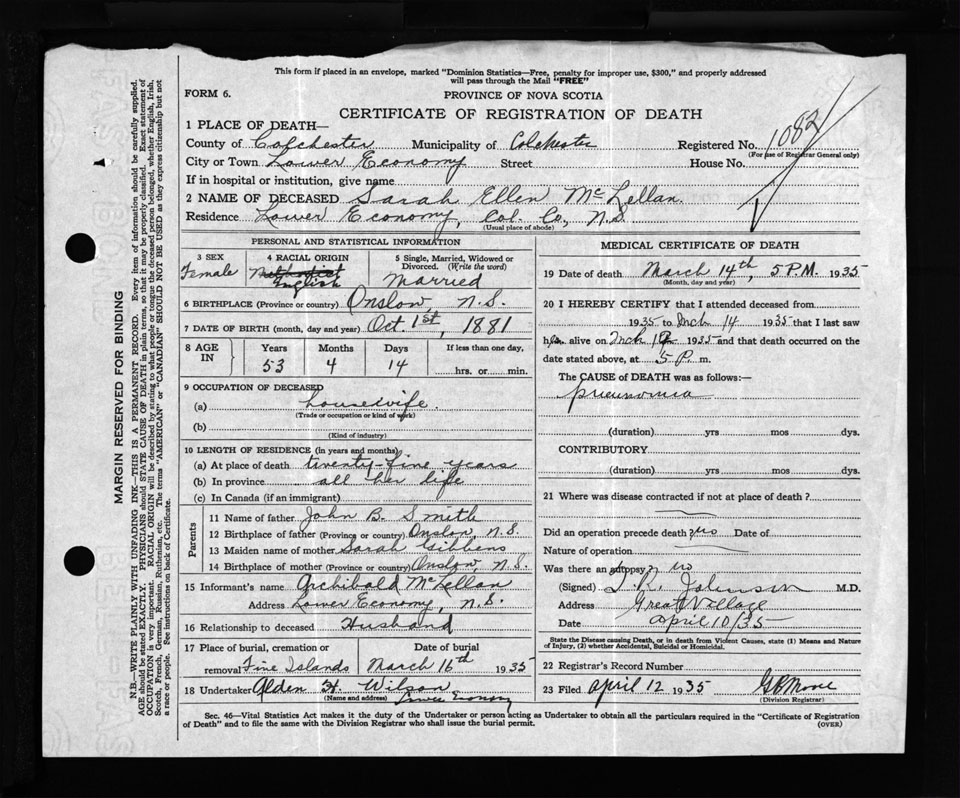 This form if placed in an envelope, marked "Dominion Statistics—Free, penalty for improper use, $300," and properly addressed
will pass through the Mail "FREE"
FORM 6.
PROVINCE OF NOVA SCOTIA
CERTIFICATE OF REGISTRATION OF DEATH
1 PLACE OF DEATH—
County of Colchester Municipality of Colchester Registered No. 1082
(For use of Registrar General only)
City or Town Lower Economy Street House No.
If in hospital or institution, give name
2 NAME OF DECEASED Sarah Ellen McLellan.
Residence Lower Economy, Col. Co., N.S.
(Usual place of abode)
PERSONAL AND STATISTICAL INFORMATION
3 SEX 4 RACIAL ORIGIN 5 Single, Married, Widowed or
Divorced. (Write the word)
Female Methodist
English Married
6 BIRTHPLACE (Province or country) Onslow, N.S.
7 DATE OF BIRTH (month, day and year) Oct. 1st, 1881
8 AGE
IN
Years Months Days If less than one day,
53 4 14 hrs. or min.
9 OCCUPATION OF DECEASED
(a) housewife.
(Trade or occupation or kind of work)
(b)
(Kind of industry)
10 LENGTH OF RESIDENCE (in years and months)
(a) At place of death twenty-five years
(b) In province all her life
(c) In Canada (if an immigrant)
Parents
11 Name of father John B. Smith
12 Birthplace of father (Province or country) Onslow, N.S.
13 Maiden name of mother Sarah Gibbens
14 Birthplace of mother (Province or country) Onslow N.S.
15 Informant's name Archibald McLellan
Address Lower Economy, N.S.
16 Relationship to deceased Husband
17 Place of burial, cremation or Date of burial
removal Five Islands March 16th 1935
18 Undertaker Alden H. Wilson
(Name and address) Lower Economy
MEDICAL CERTIFICATE OF DEATH
19 Date of death March 14th, 5 P.M. 1935
(Month, day and year)
20 I HEREBY CERTIFY that I attended deceased from
1935 to Mch 14 1935 that I last saw
her alive on Mch 1935 and that death occurred on the
date stated above, at 5 P. m.
The CAUSE OF DEATH was as follows:—
pneumonia
(duration) yrs mos dys.
CONTRIBUTORY
(duration) yrs mos dys.
21 Where was disease contracted if not at place of death?
Did an operation precede death? no Date of
Nature of operation
Was there an autopsy? no
(Signed) T. R. Johnson M.D.
Address Great Village
Date April 10/35
State the Disease causing Death, or in death from Violent Causes, state (1) Means and Nature
of Injury, (2) whether Accidental, Suicidal or Homicidal.
22 Registrar's Record Number
23 Filed April 12 1935 Moore
(Division Registrar)
Sec. 46—Vital Statistics Act makes it the duty of the Undertaker or person acting as Undertaker to obtain all the particulars required in the "Certificate of Registration
of Death" and to file the same with the Division Registrar who shall issue the burial permit. (OVER)
MARGIN RESERVED FOR BINDING
N.B.—WRITE PLAINLY WITH UNFADING INK—THIS IS A PERMANENT RECORD. Every item of information should be carefully supplied.
AGE should be stated EXACTLY. PHYSICIANS should STATE CAUSE OF DEATH in plain terms, so that it may be properly classified. Exact statement of
OCCUPATION is very important. RACIAL ORIGIN will be described by stating to what people or tongue the deceased person belonged, whether English, Irish,
Scotch, French, German, Russian, Ruthenian, etc. The terms "AMERICAN" or "CANADIAN" SHOULD NOT BE USED as they express citizenship but not
a race or people. See instructions on back of Certificate.